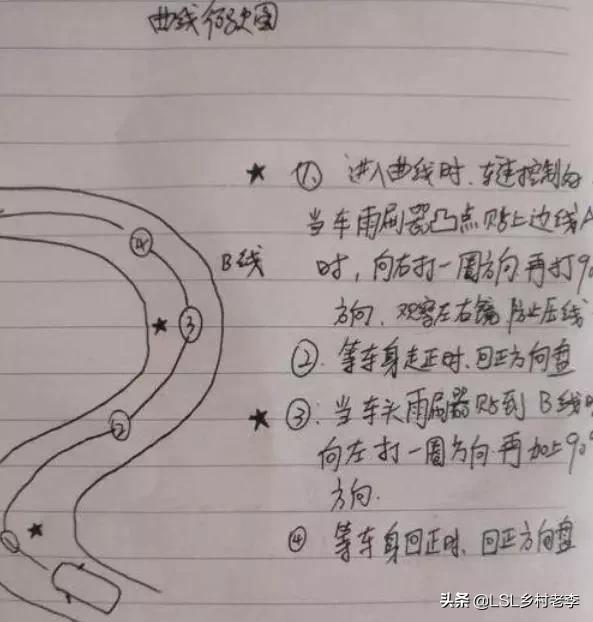 曲线行驶图
★ 1、进入曲线时、车速控制好
当车雨刷器凸点贴上边线A
时，向右打一圈方向再打90
方向、观察左右镜防止压线
②. 等车身走正时、回正方向盘
★ ③: 当车头雨刷器贴到B线时
向左打一圈方向再加上90°
方向.
④ 等车身回正时、回正方向盘
B线
④
③
②
头条 @LSL乡村老李